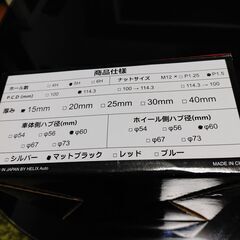 商品仕様
ホール数 □4H ■5H □6H ナットサイズ M12 × □P1.25 ■P1.5
P.C.D (mm) □100 ■114.3 □100 → 114.3 □114.3 → 100
厚み ■15mm □20mm □25mm □30mm □40mm
車体側ハブ径(mm) ホイール側ハブ径(mm)
□φ54 □φ56 ■φ60 □φ54 □φ56 ■φ60
□φ67 □φ73 □φ67 □φ73
□シルバー ■マットブラック □レッド □ブルー
IN JAPAN BY HELIX Auto MADE IN CH